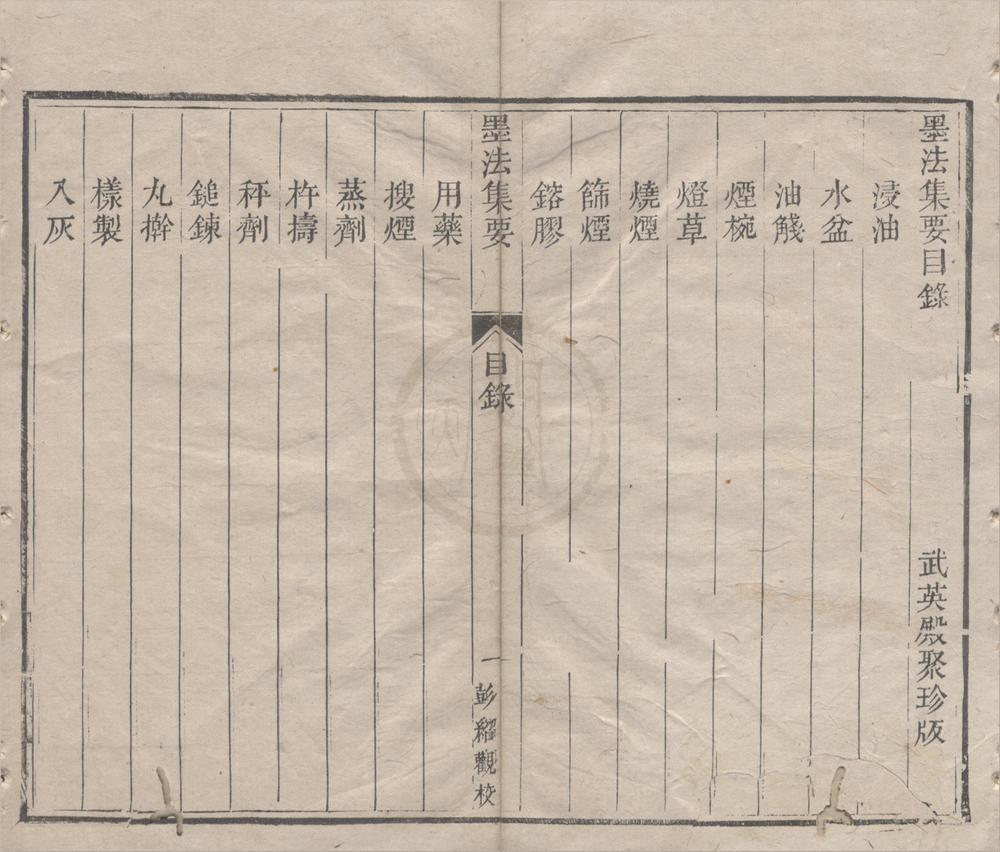 墨法集要目錄 武英殿聚珍版
浸油
水盆
油艬
煙椀
燈草
燒煙
篩煙
鎔膠
墨法集要 目錄 一 彭紹觀校
用藥
搜煙
蒸劑
杵擣
秤劑
鎚鍊
丸擀
樣製
入灰